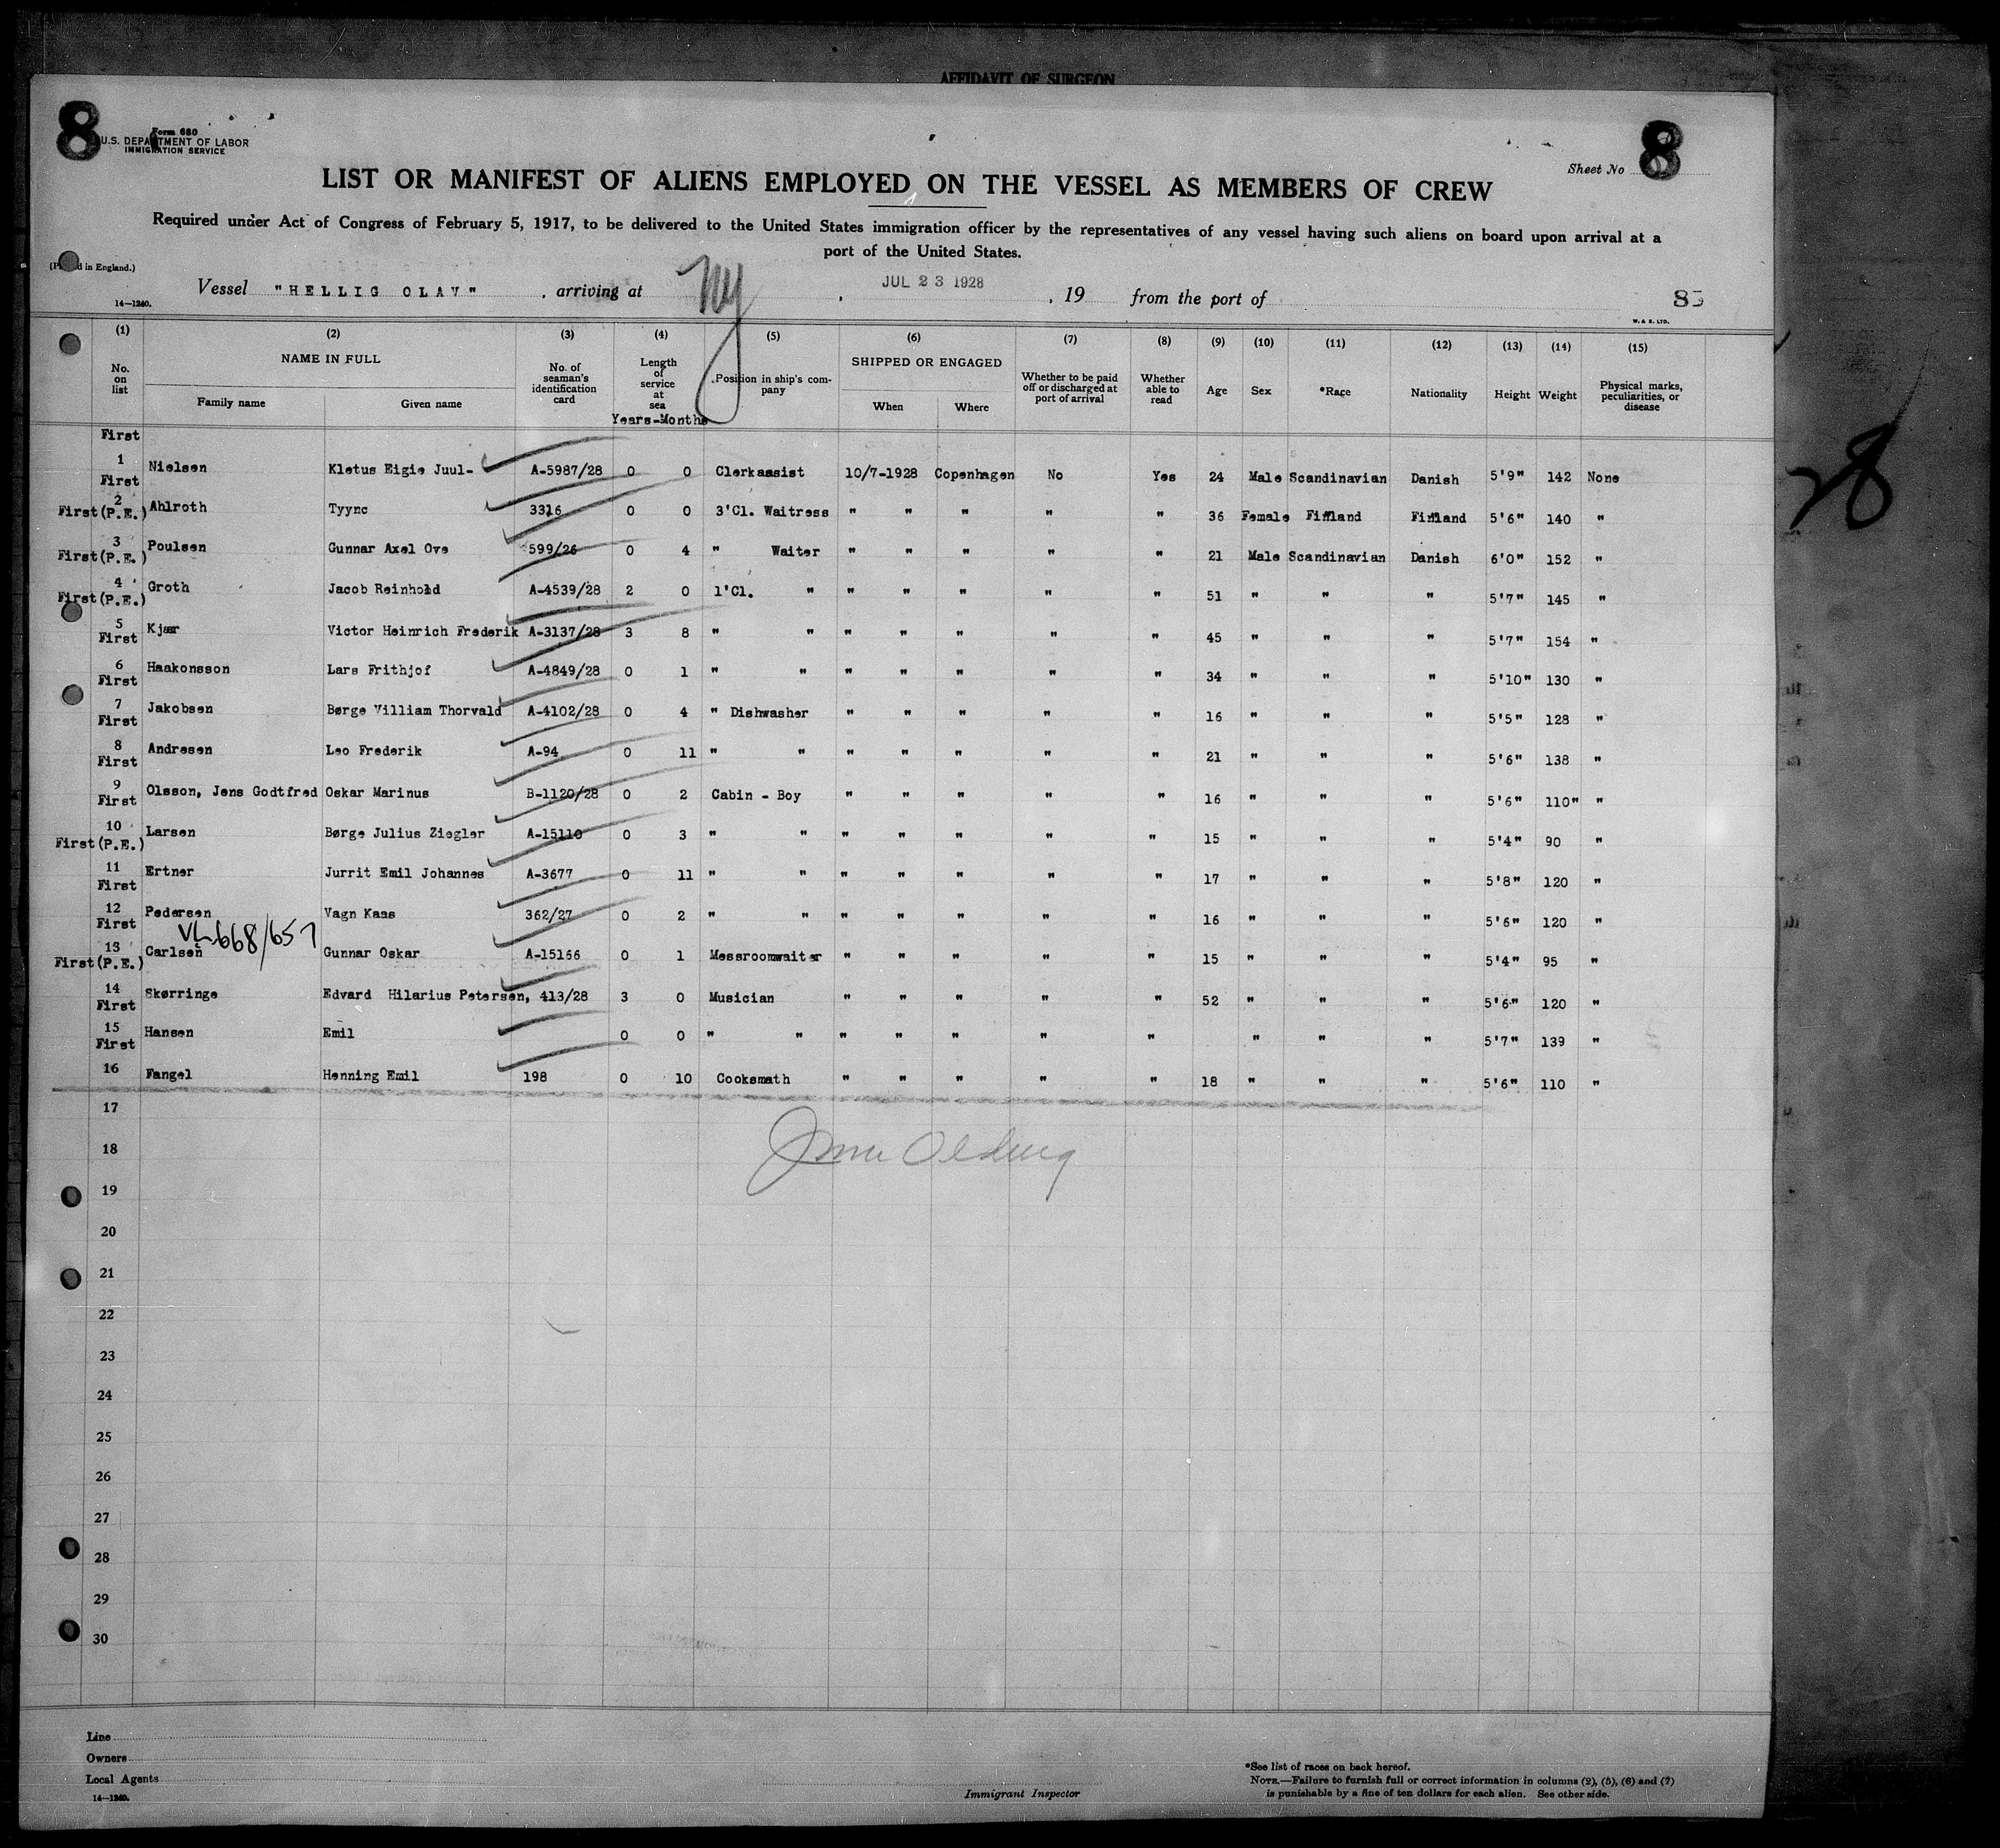 AFFIDAVIT OF SURGEON
8
Form 680
U.S. DEPARTMENT OF LABOR
IMMIGRATION SERVICE
Sheet No 8
LIST OR MANIFEST OF ALIENS EMPLOYED ON THE VESSEL AS MEMBERS OF CREW
Required under Act of Congress of February 5, 1917, to be delivered to the United States immigration officer by the representatives of any vessel having such aliens on board upon arrival at a
port of the United States.
(Printed in England.)
Vessel "HELLIG OLAV", arriving at NY, JUL 23 1928, 19 from the port of
14—1240.
W. & S. LTD.
(1) (2) (3) (4) (5) (6) (7) (8) (9) (10) (11) (12) (13) (14) (15)
No. on list
NAME IN FULL
Family name Given name
No. of seaman's identification card
Length of service at sea
Years-Months
Position in ship's company
SHIPPED OR ENGAGED
When Where
Whether to be paid off or discharged at port of arrival
Whether able to read
Age Sex *Race Nationality Height Weight
Physical marks, peculiarities, or disease
First
1 Nielsen Kletus Eigie Juul- A-5987/28 0 0 Clerkassist 10/7-1928 Copenhagen No Yes 24 Male Scandinavian Danish 5'9" 142 None
First
2 Ahlroth Tyync 3316 0 0 3'Cl. Waitress " " " " " 36 Female Finland Finland 5'6" 140 "
First(P.E.)
3 Poulsen Gunnar Axel Ove 599/26 0 4 " Waiter " " " " " 21 Male Scandinavian Danish 6'0" 152 "
First(P.E.)
4 Groth Jacob Reinhold A-4539/28 2 0 1'Cl. " " " " " " 51 " " " 5'7" 145 "
First(P.E.)
5 Kjær Victor Heinrich Frederik A-3137/28 3 8 " " " " " " " 45 " " " 5'7" 154 "
First
6 Haakonsson Lars Frithjof A-4849/28 0 1 " " " " " " " 34 " " " 5'10" 130 "
First
7 Jakobsen Børge Villiam Thorvald A-4102/28 0 4 " Dishwasher " " " " " 16 " " " 5'5" 128 "
First
8 Andresen Leo Frederik A-94 0 11 " " " " " " " 21 " " " 5'6" 138 "
First
9 Olsson, Jens Godtfred Oskar Marinus B-1120/28 0 2 Cabin - Boy " " " " " 16 " " " 5'6" 110" "
First
10 Larsen Børge Julius Ziegler A-15110 0 3 " " " " " " " 15 " " " 5'4" 90 "
First(P.E.)
11 Ertner Jurrit Emil Johannes A-3677 0 11 " " " " " " " 17 " " " 5'8" 120 "
First
12 Pedersen Vagn Kaas 362/27 0 2 " " " " " " " 16 " " " 5'6" 120 "
First
668/657
13 Carlsen Gunnar Oskar A-15166 0 1 Messroomwaiter " " " " " 15 " " " 5'4" 95 "
First(P.E.)
14 Skørringe Edvard Hilarius Petersen, 413/28 3 0 Musician " " " " " 52 " " " 5'6" 120 "
First
15 Hansen Emil 0 0 " " " " " " " " " " 5'7" 139 "
First
16 Fangel Henning Emil 198 0 10 Cooksmath " " " " " 18 " " " 5'6" 110 "
17
18
19
20
21
22
23
24
25
26
27
28
29
30
28
Line
Owners
Local Agents
14—1240.
Immigrant Inspector
*See list of races on back hereof.
NOTE.—Failure to furnish full or correct information in columns (2), (5), (6) and (7)
is punishable by a fine of ten dollars for each alien. See other side.